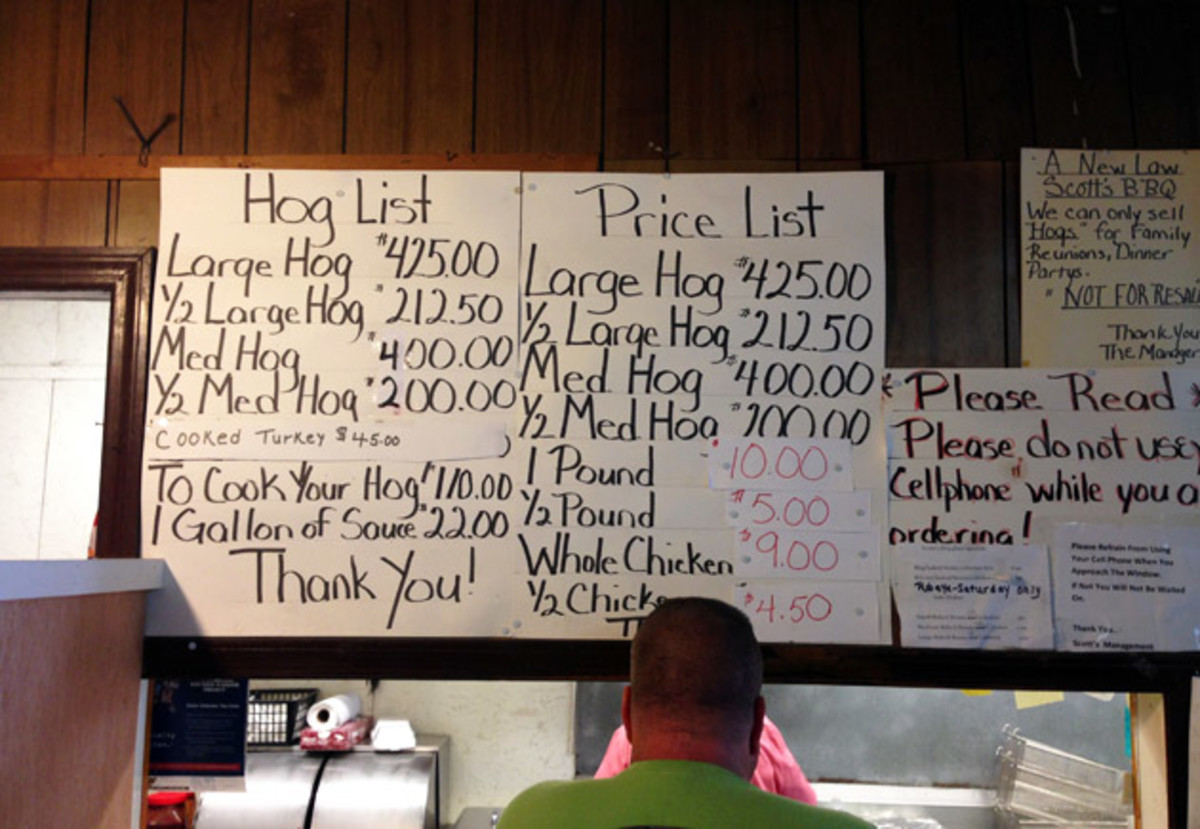 Hog List
Large Hog $425.00
1/2 Large Hog $212.50
Med Hog $400.00
1/2 Med Hog $200.00
Cooked Turkey $45.00
To Cook Your Hog $110.00
1 Gallon of Sauce $22.00
Thank You!
Price List
Large Hog $425.00
1/2 Large Hog $212.50
Med Hog $400.00
1/2 Med Hog $200.00
1 Pound $10.00
1/2 Pound $5.00
Whole Chicken $9.00
1/2 Chicke $4.50
A New Law
Scott's B'BQ
We can only sell
"Hogs" for Family
Reunions, Dinner
Partys.
" NOT FOR RESAL
Thank You
The Manager
* Please Read *
Please do not use
Cellphone" while you o
ordering!
Ribeye-Saturday only
Please Refrain From Using
Your Cell Phone When You
Approach The Window.
If Not You Will Not Be Waited
On.
Thank You..
Scott's Management